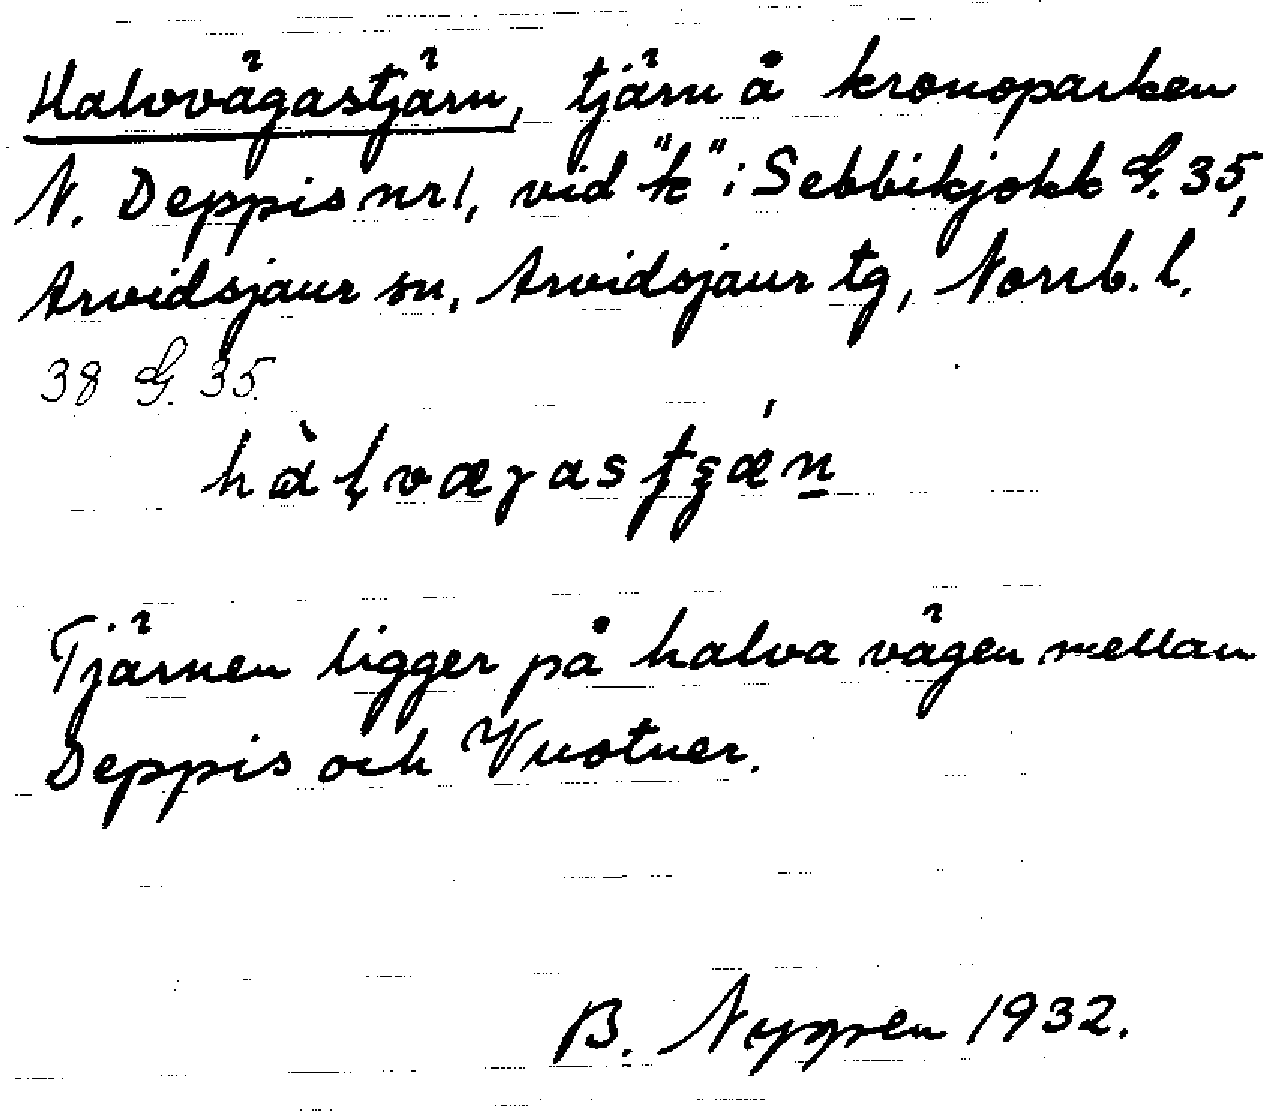 Halvvägastjärn, tjärn å kronoparken
N. Deppis nr 1, vid "k" i Sebbikjokk G. 35,
Arvidsjaur sn, Arvidsjaur tg, Norrb. l.
38 G. 35.
Tjärnen ligger på halva vägen mellan
Deppis och Vuotner.
B. Nyppen 1932.